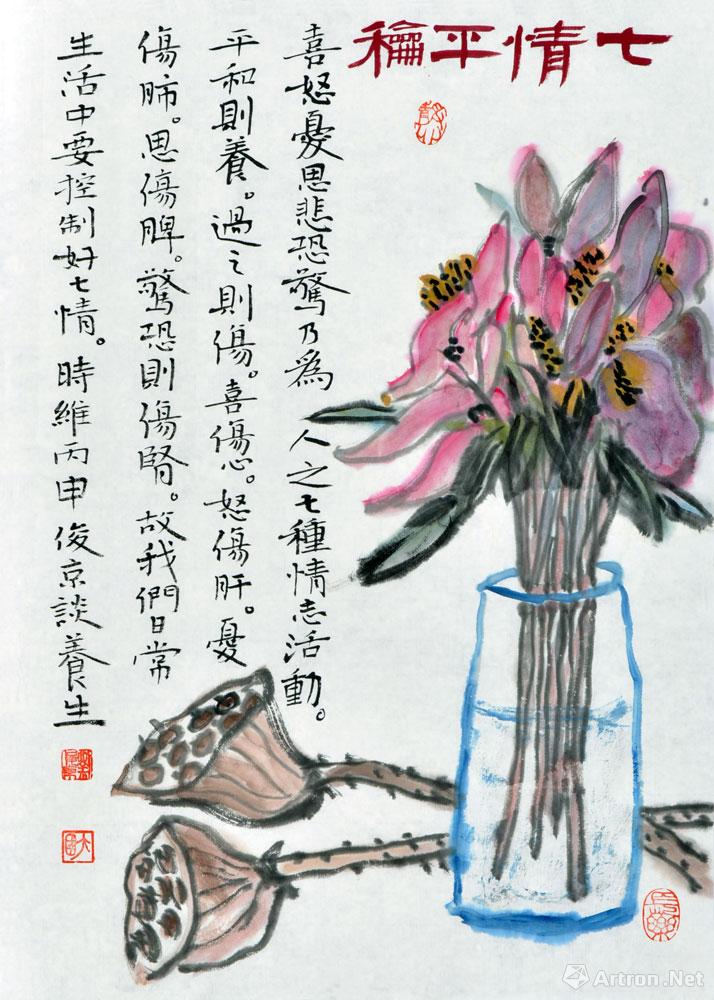 七情平龢
喜怒憂思悲恐驚乃為人之七種情志活動。
平和則養。過之則傷。喜傷心。怒傷肝。憂
傷肺。思傷脾。驚恐則傷腎。故我們日常
生活中要控制好七情。時維丙申俊京談養生
Artron.Net